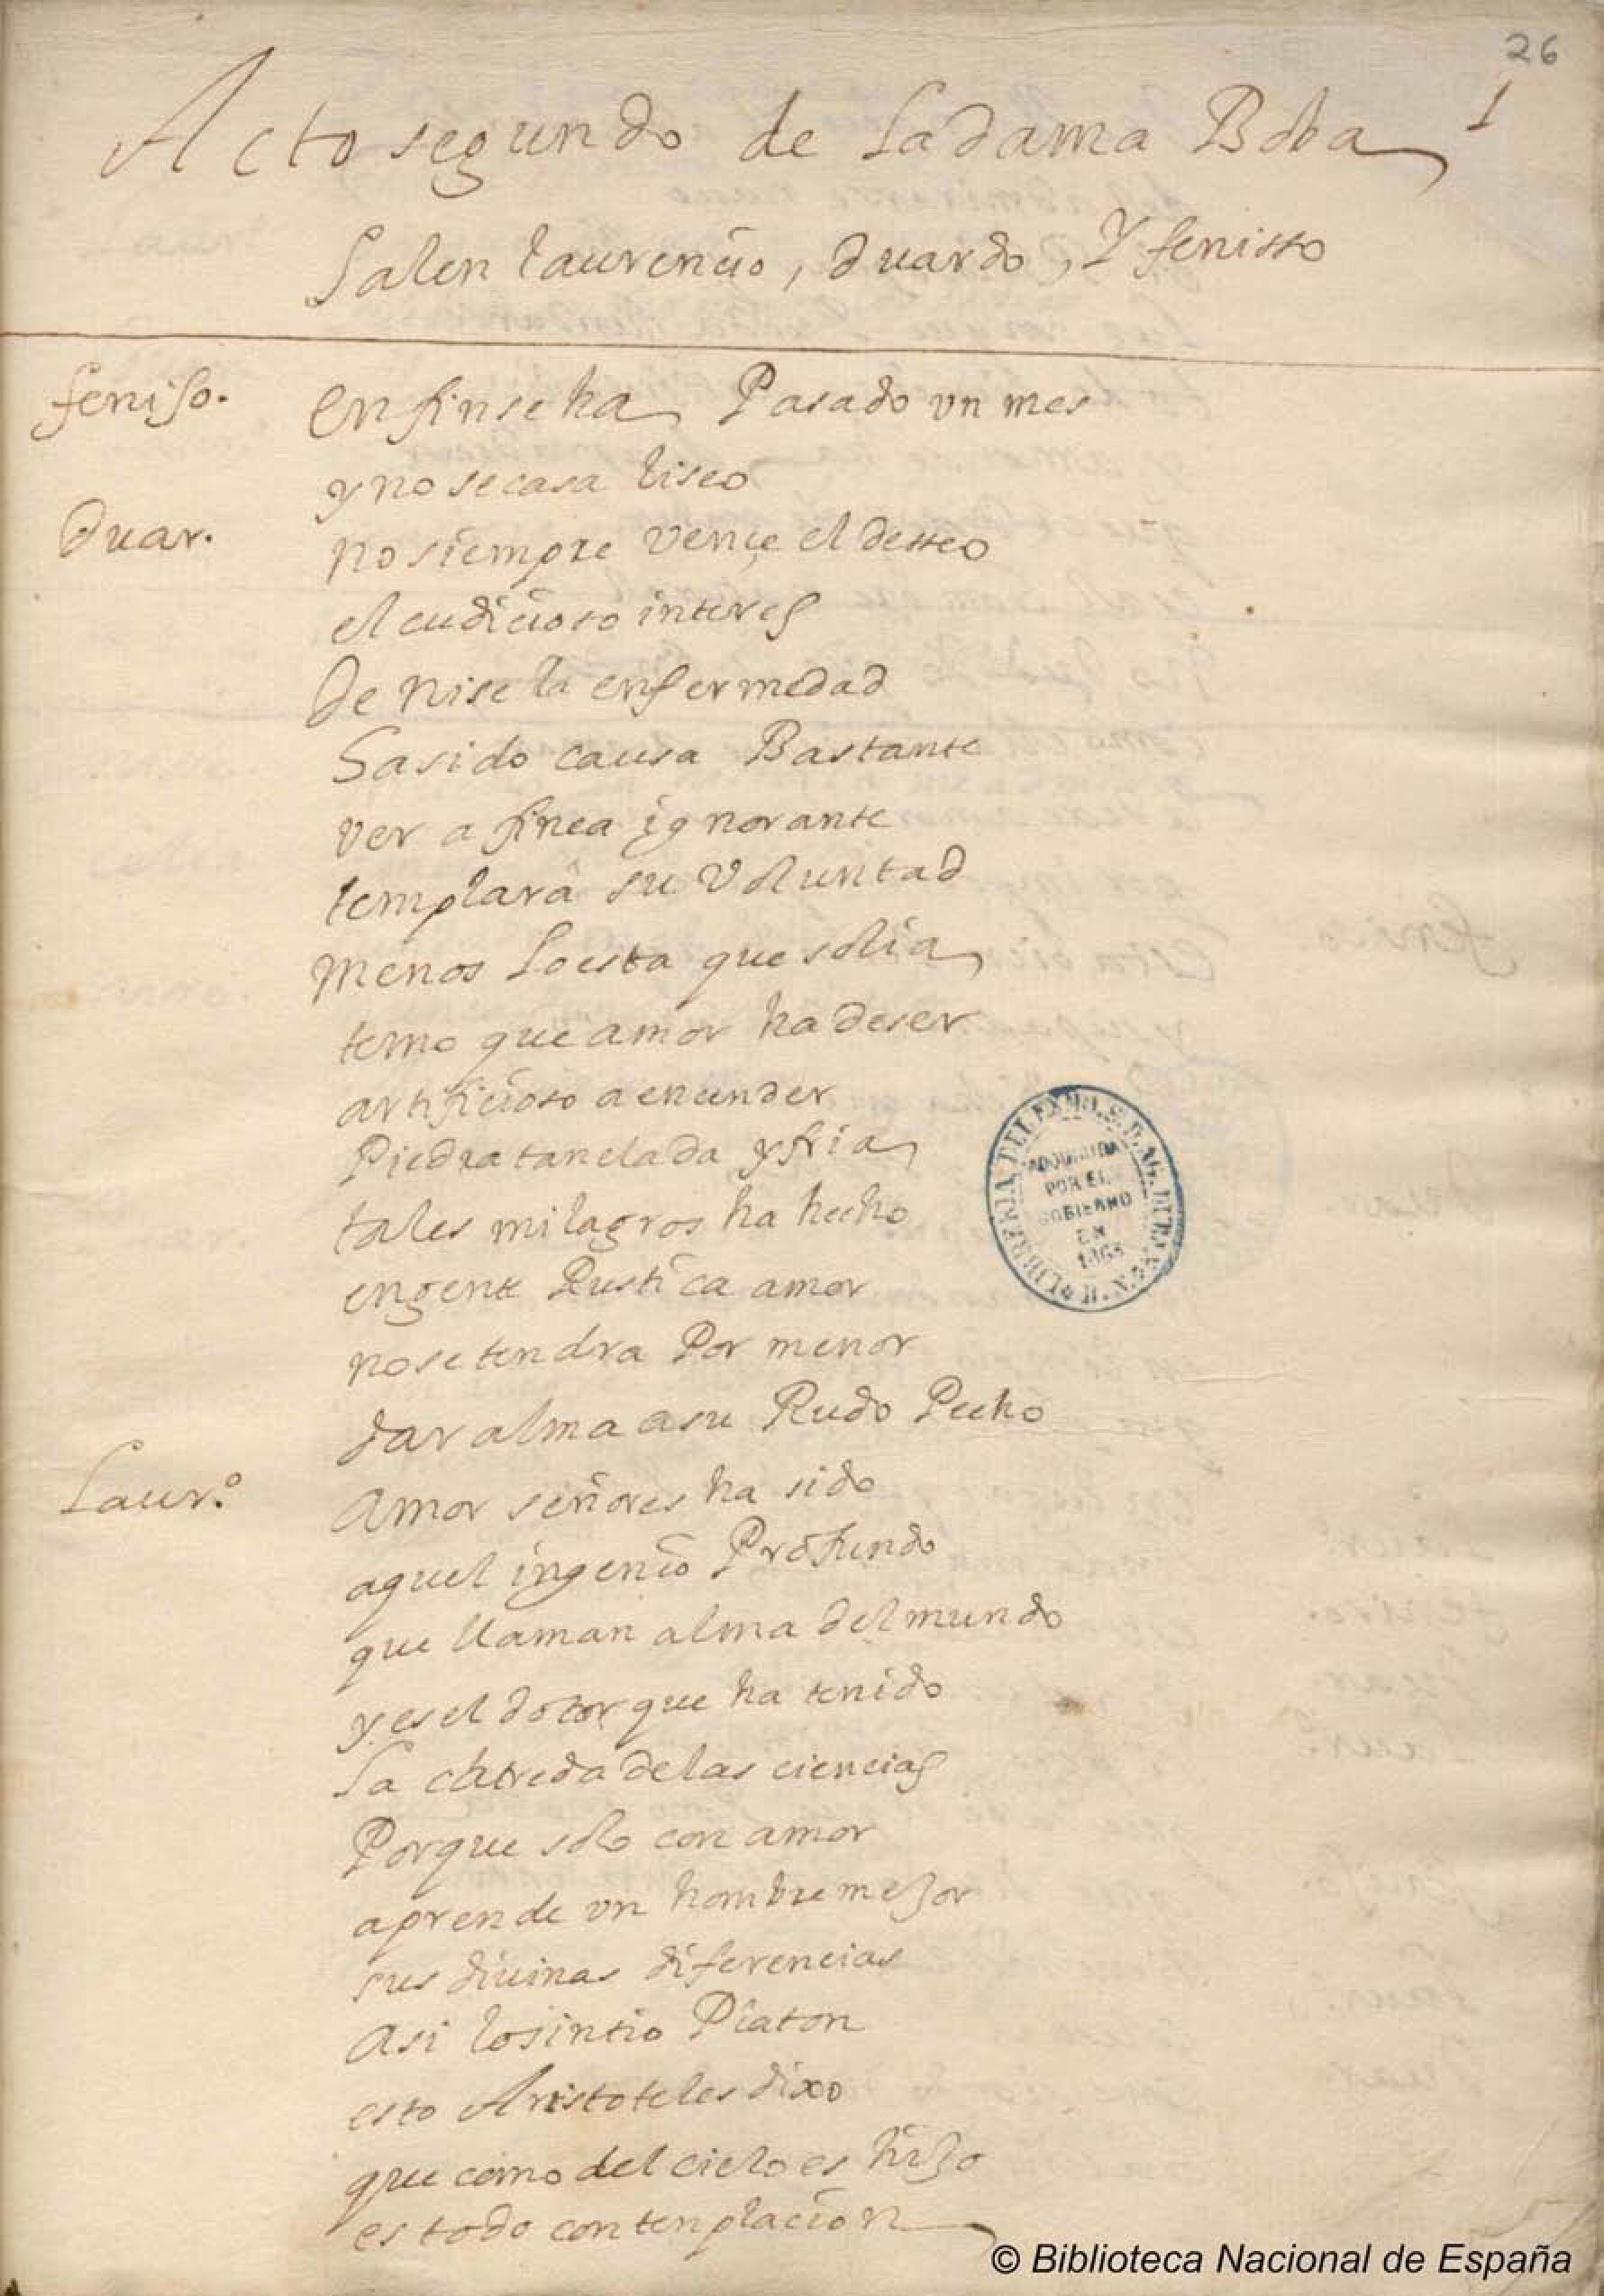 26
1
Acto segundo de La dama Boba
Salen laurencio, duardo, y fenisso
feniso. En fin se ha Pasado un mes
y no se casa liseo
Duar. no siempre vençe el desseo
el cudicioso interes
de nise la enfermedad
Ha sido causa Bastante
ver a finea ignorante
templara su voluntad
menos lo esta que solia
temo que amor ha de ser
artificioso a encender
Piedra tan elada y fria
tales milagros ha hecho
en gente Rustica amor
no se tendra Por menor
dar alma a su Rudo Pecho
Laur.º Amor señores ha sido
aquel ingenio Profundo
que llaman alma del mundo
y es el dotor que ha tenido
La catreda de las ciencias
Porque solo con amor
aprende un hombre mejor
sus diuinas diferencias
Asi lo sintio Platon
esto Aristoteles dixo
que como del cielo es hijo
es todo contenplacion
ADQUIRIDA
POR EL
GOBIERNO
EN
1863
© Biblioteca Nacional de España